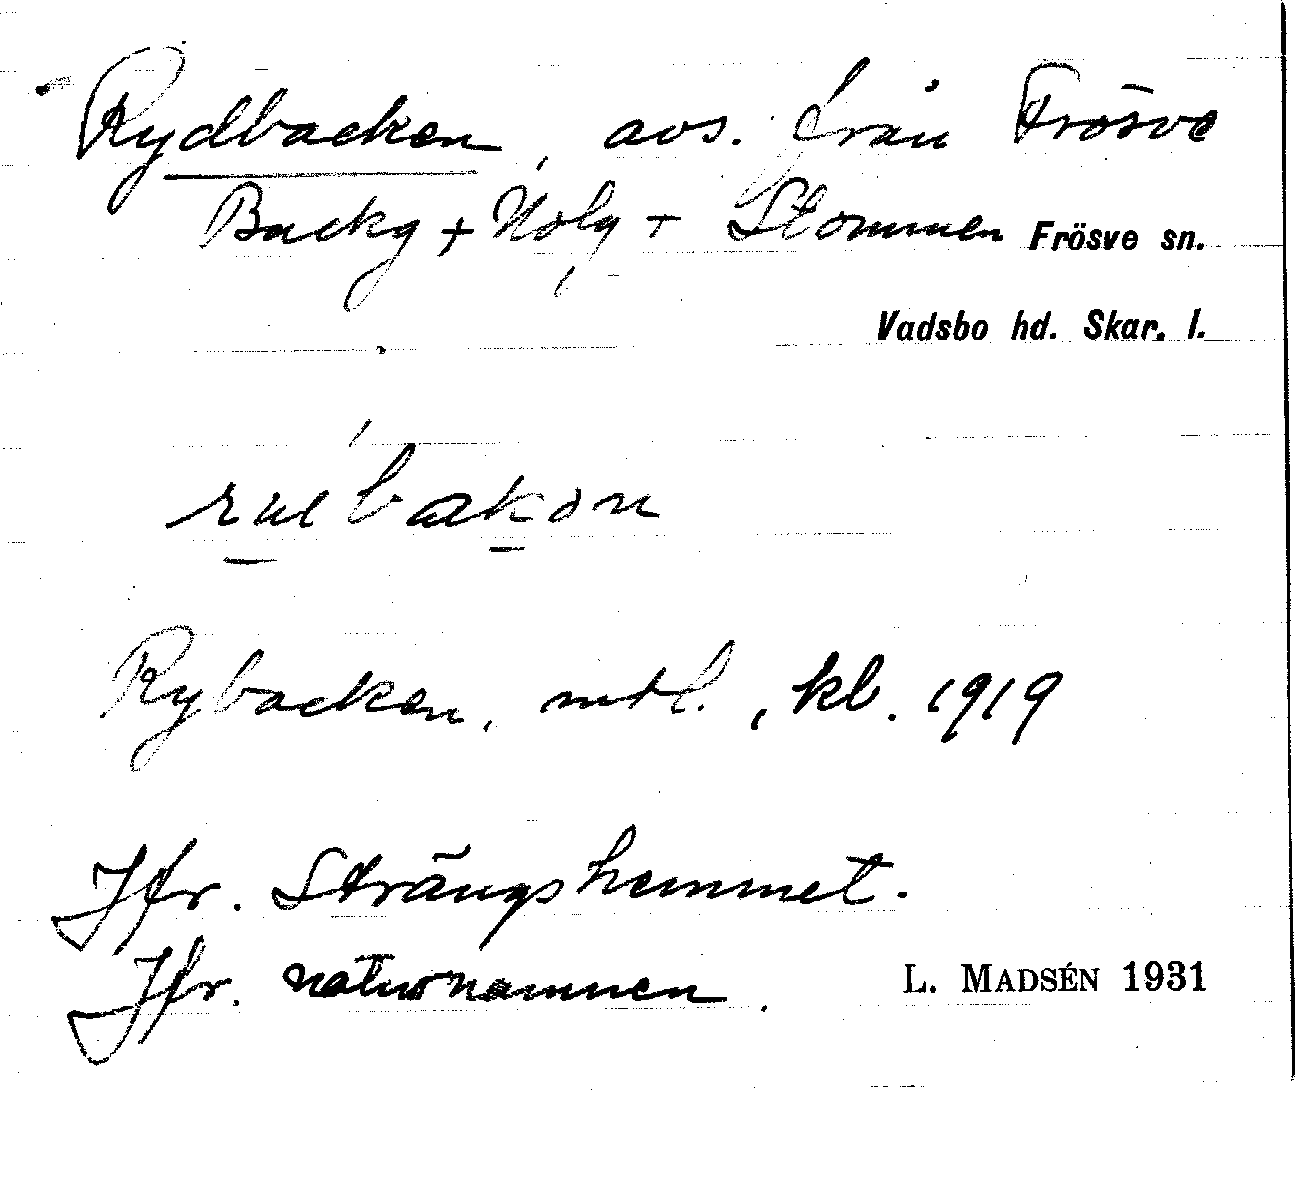 Rydbacken, avs. från Frösve
Backg + Nolg + Stommen Frösve sn.
Vadsbo hd. Skar. l.
Rybacken, mtl., kb. 1919
Jfr. Strängshemmet.
Jfr. naturnamnen.
L. MADSÉN 1931